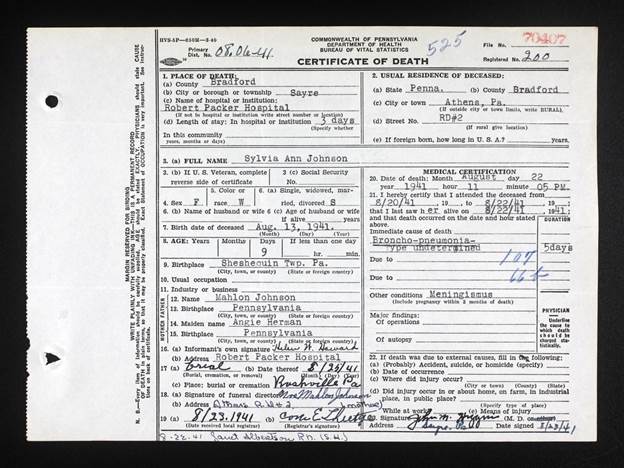 HVS-AP-
COMMONWEALTH OF PENNSYLVANIA
DEPARTMENT OF HEALTH
BUREAU OF VITAL STATISTICS
CERTIFICATE OF DEATH
Primary Dist. No. 08.06-41
525
File No. 70407
Registered No. 200
MARGIN RESERVED FOR BINDING
WRITE PLAINLY WITH UNFADING INK—THIS IS A PERMANENT RECORD
1. PLACE OF DEATH:
(a) County Bradford
(b) City or borough or township Sayre
(c) Name of hospital or institution:
Robert Packer Hospital
(If not in hospital or institution write street number or location)
(d) Length of stay: In hospital or institution 3 days
(Specify whether
In this community
years, months or days)
2. USUAL RESIDENCE OF DECEASED:
(a) State Penna. (b) County Bradford
(c) City or town Athens, Pa.
(If outside city or town limits, write RURAL)
(d) Street No. RD#2
(If rural give location)
(e) If foreign born, how long in U. S. A.? years
3. (a) FULL NAME Sylvia Ann Johnson
3. (b) If U. S. Veteran, complete reverse side of certificate
3. (c) Social Security No.
4. Sex F
5. Color or race W
6. (a) Single, widowed, married, divorced S
6. (b) Name of husband or wife
6. (c) Age of husband or wife if alive years
7. Birth date of deceased Aug. 13, 1941.
(Month) (Day) (Year)
8. AGE: Years Months Days If less than one day
9 hr. min.
9. Birthplace Sheshequin Twp. Pa.
(City, town, or county) (State or foreign country)
10. Usual occupation
11. Industry or business
FATHER
12. Name Mahlon Johnson
13. Birthplace Pennsylvania
(City, town, or county) (State or foreign country)
MOTHER
14. Maiden name Angie Herman
15. Birthplace Pennsylvania
(City, town, or county) (State or foreign country)
16. (a) Informant's own signature Helen
(b) Address Robert Packer Hospital
17. (a) (b) Date thereof 8/25/41
(Burial, cremation, or removal) (Month) (Day) (Year)
(c) Place; burial or cremation Pa
18. (a) Signature of funeral director Mrs Mahlon Johnson
(b) Address Athens R D #2 (mother)
19. (a) 8/23.1941 (b)
(Date received local registrar) (Registrar's signature)
8-22-41 Janet Albertson R.N.
MEDICAL CERTIFICATION
20. Date of death: Month August day 22
year 1941 hour 11 minute 05 PM.
21. I hereby certify that I attended the deceased from
8/20/41 19 to 8/22/41 19
that I last saw her alive on 8/22/41 1941
and that death occurred on the date and hour stated above.
DURATION
Immediate cause of death
Broncho-pneumonia-
Type undetermined 5days
Due to 107
Due to
Other conditions Meningismus
(Include pregnancy within 3 months of death)
Major findings:
Of operations
Of autopsy
PHYSICIAN
Underline the cause to which death should be charged statistically.
22. If death was due to external causes, fill in the following:
(a) (Probably) Accident, suicide, or homicide (specify)
(b) Date of occurrence
(c) Where did injury occur?
(City or town) (County) (State)
(d) Did injury occur in or about home, on farm, in industrial place, in public place?
(Specify type of place)
While at work? (e) Means of injury
John M. (M. D.
Sayre, Pa Date signed 8/23/41